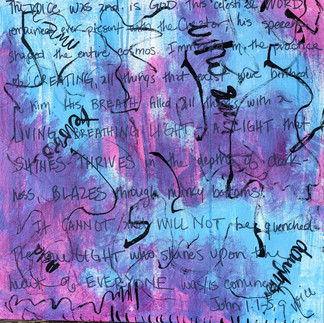 The VOICE was and is GOD. This celestial WORD
remained ever present with the Creator; His speech
shaped the entire cosmos. Immersed in the practice
of CREATING, all things that exist were birthed
in him. His BREATH filled all things with a
LIVING, BREATHING LIGHT. A LIGHT that
SHINES THRIVES in the depths of dark-
ness, BLAZES through murky bottoms.
IT CANNOT and WILL NOT be quenched.
The true LIGHT who shines upon the
heart of EVERYONE was/is coming
John 1:1-5, 9 Voice